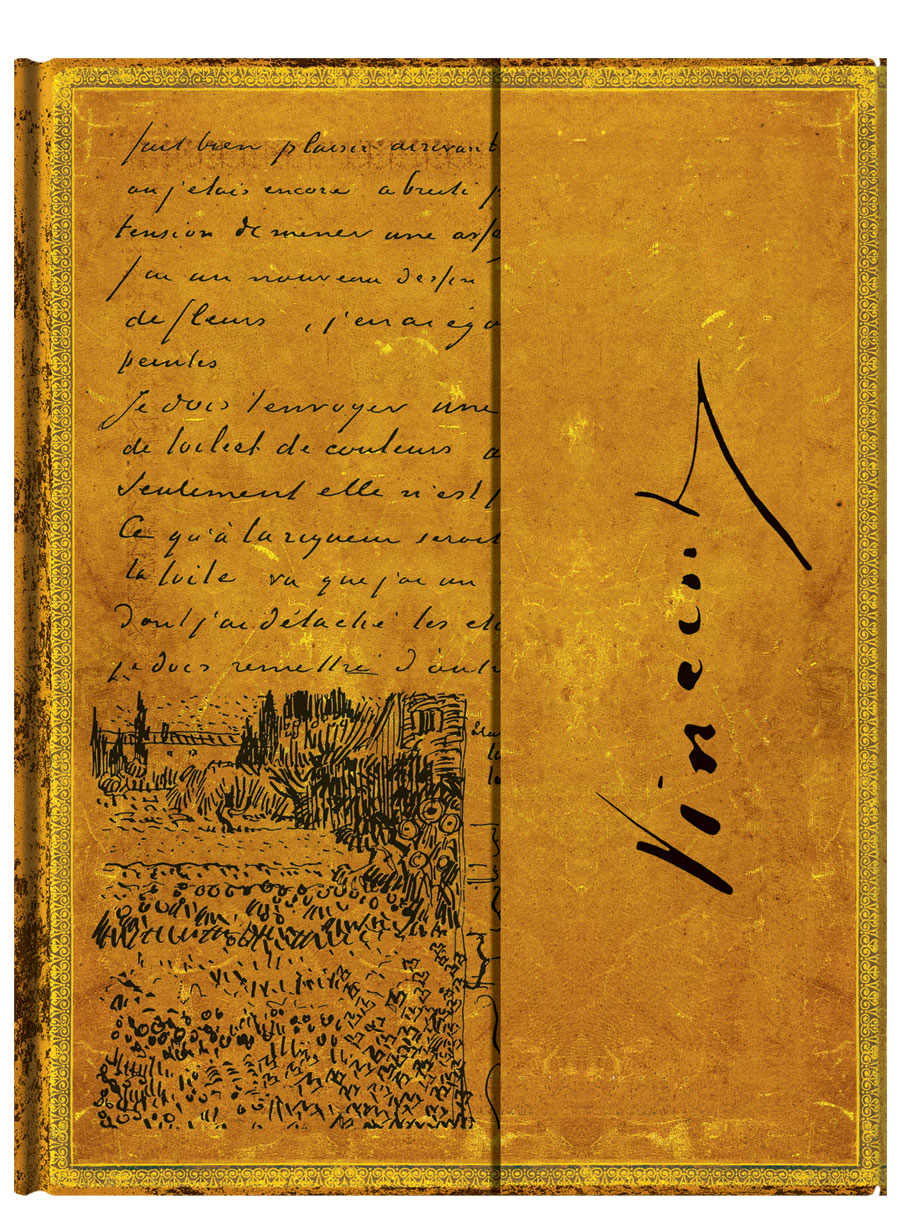 fait bien plaisir arrivant
ou j'étais encore abruti p
tension de mener une
J'ai un nouveau dessin
de fleurs, j'en ai éga
peintes
Je dois t'envoyer une
de toiles et de couleurs
Seulement elle n'est p
Ce qu'à la rigueur serait
la toile va que j'ai un
dont j'ai détaché les ch
je dois remettre d'autr
Vincent